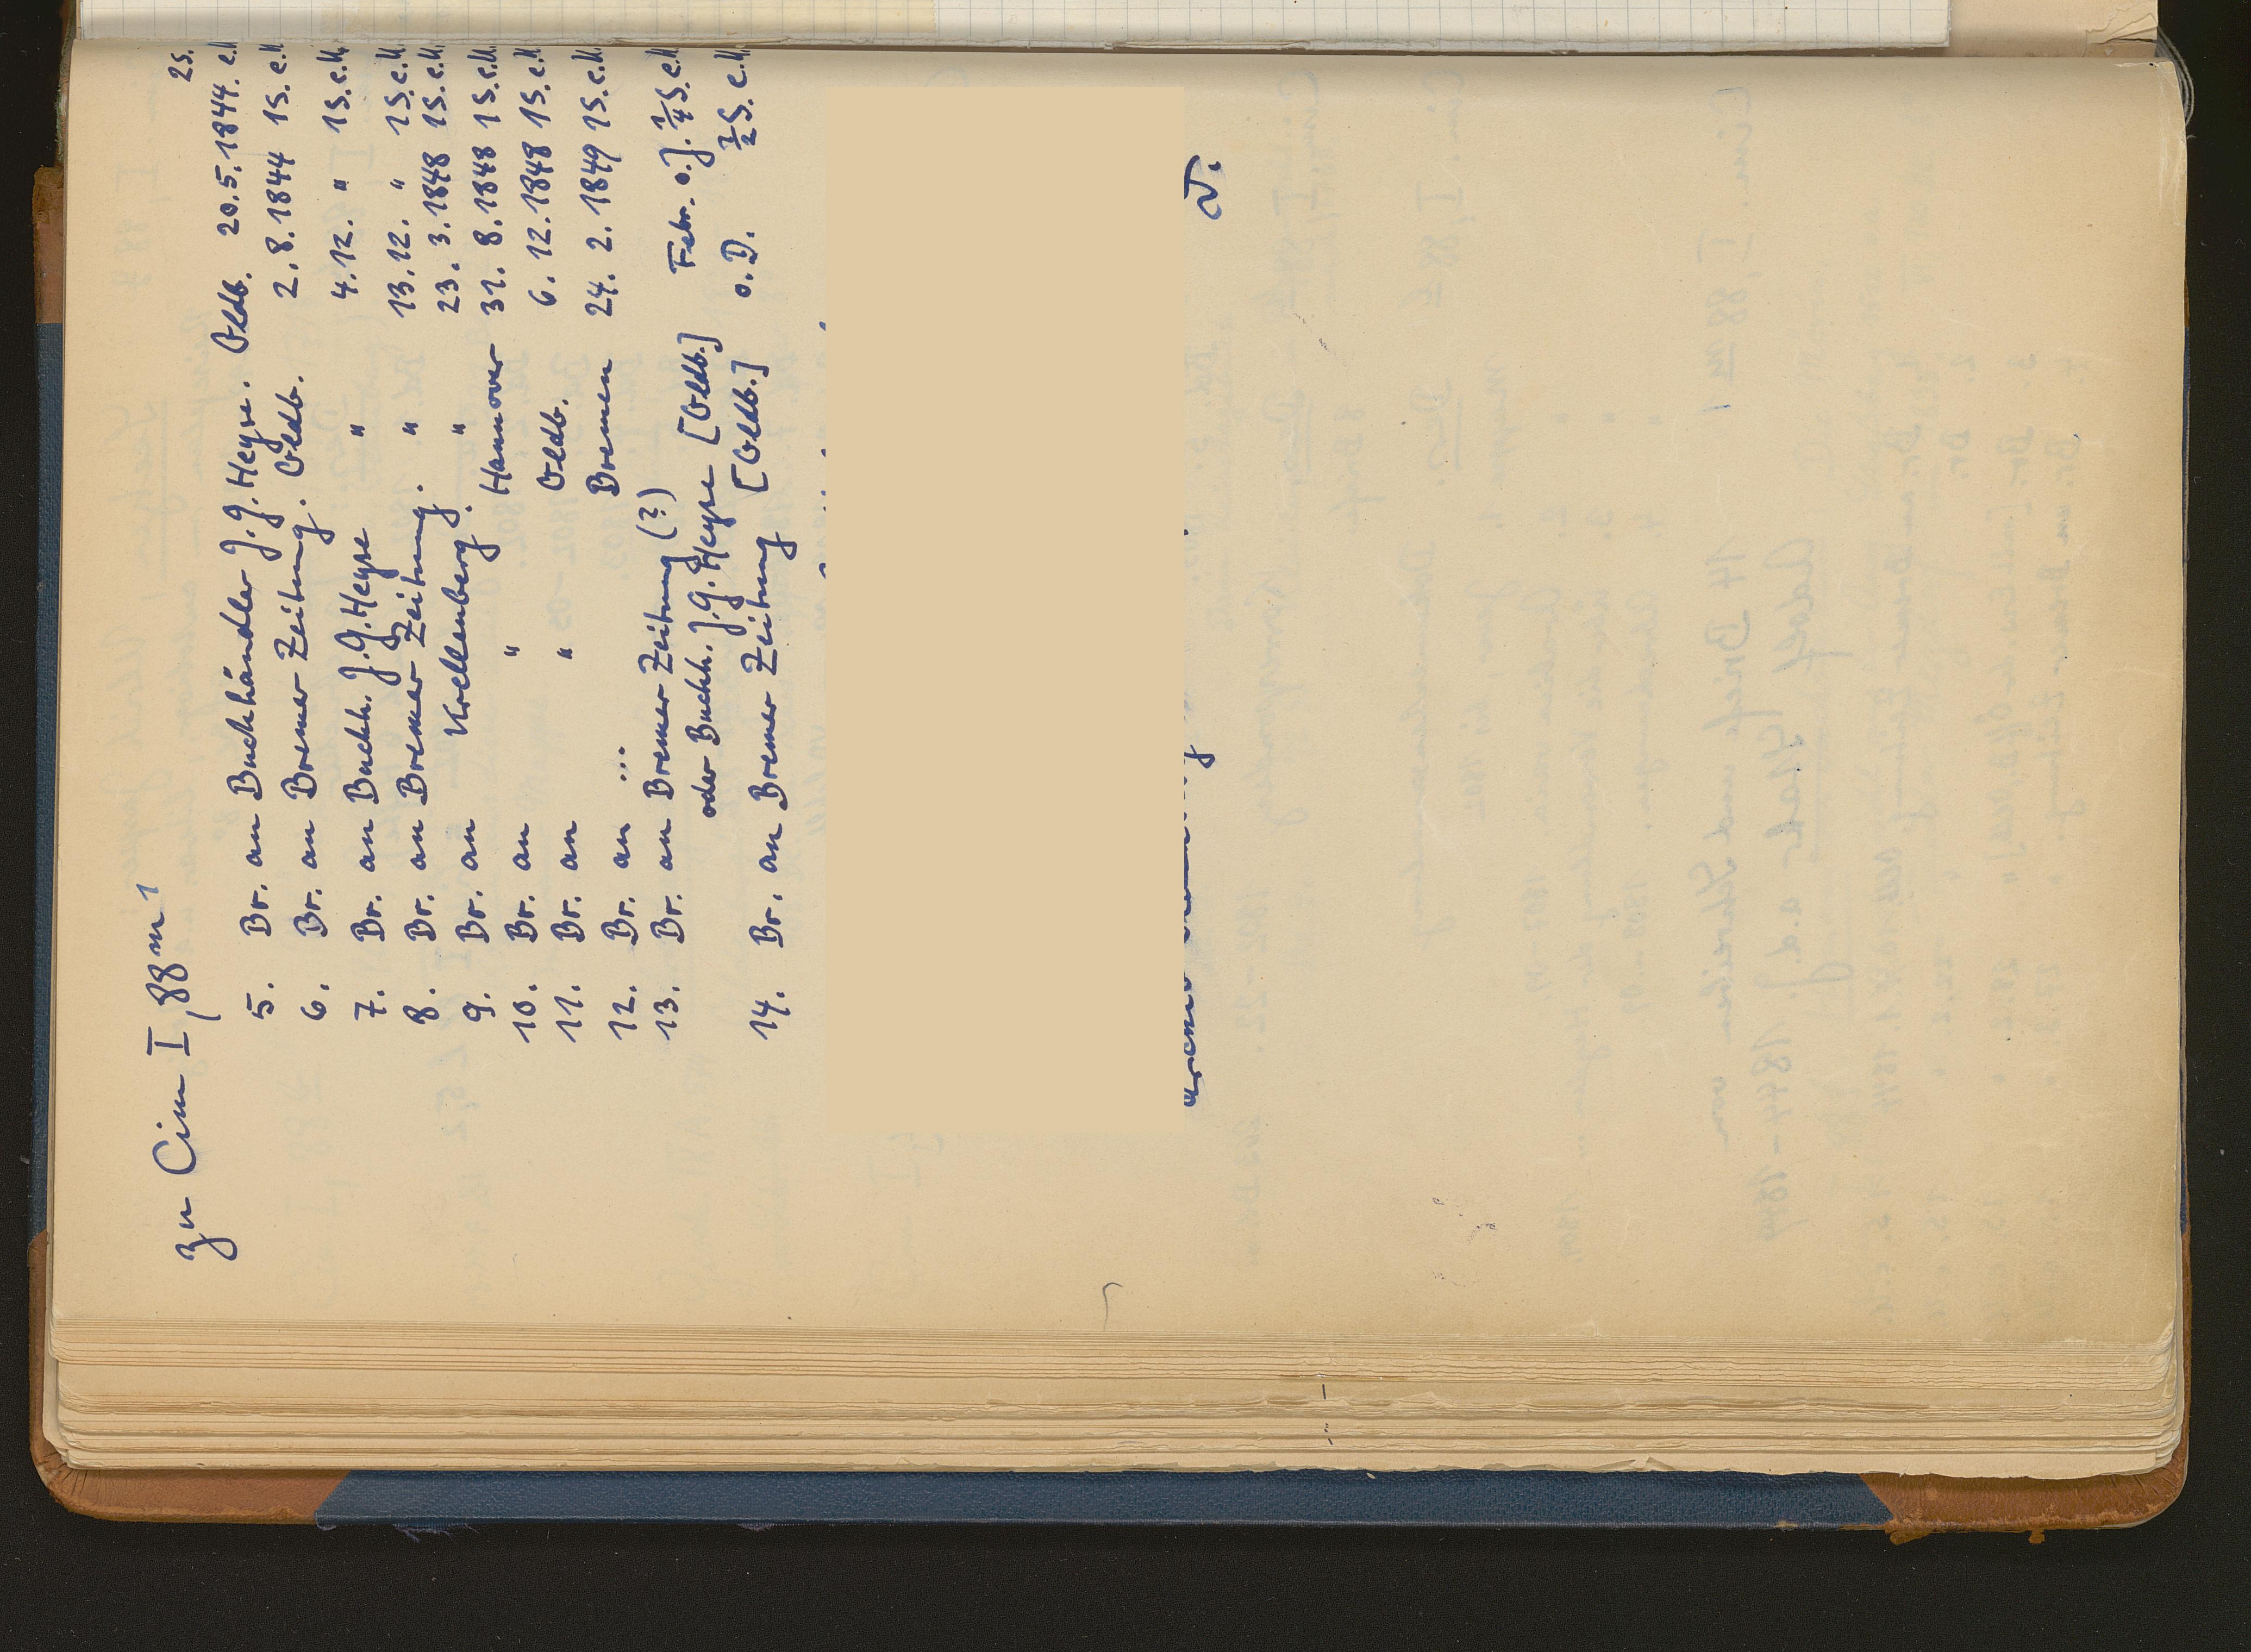 zu Cim I, 88 m 1
2S.
5. Br. an Buchhändler J. G. Heyse. Oldb. 20.5.1844. e.U
6. Br. an Bremer Zeitung. Oldb. 2.8.1844 1S. e.U
7. Br. an Buchh. J. G. Heyse " 4.12. " 1S. e.U.
8. Br. an Bremer Zeitung. " 13.12. " 1S. e.U.
9. Br. an Kollenberg. " 23. 3. 1848 1S. e.U.
10. Br. an " Hannover 31. 8. 1848 1S. e.U.
11. Br. an " Oldb. 6. 12. 1848 1S. e.U
12. Br. an ... Bremen 24. 2. 1849 1S. e.U.
13. Br. an Bremer Zeitung (?)
oder Buchh. J. G. Heyse [Oldb.] Febr. o.J. 1/4 S. e.U
14. Br. an Bremer Zeitung [Oldb.] o.D. 1/2 S. e.U.